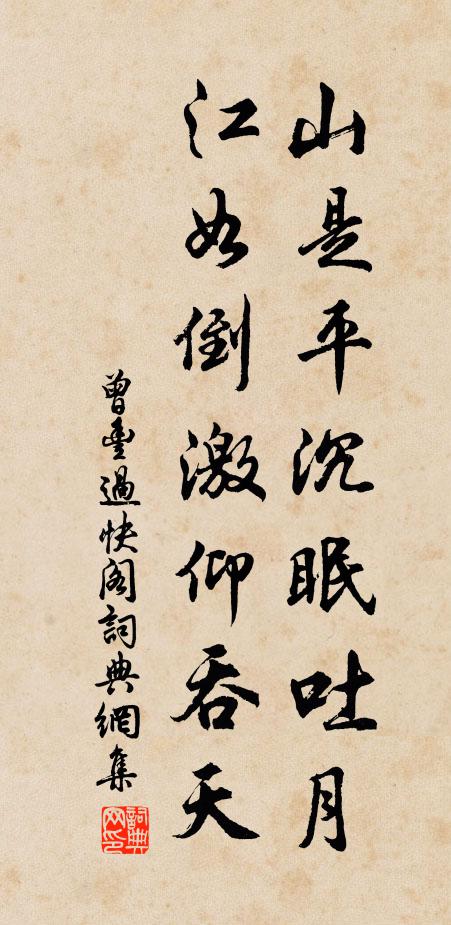 山是平沉眠吐月
江如倒激仰吞天
曾豐過快阁詞典網集
詞典网印